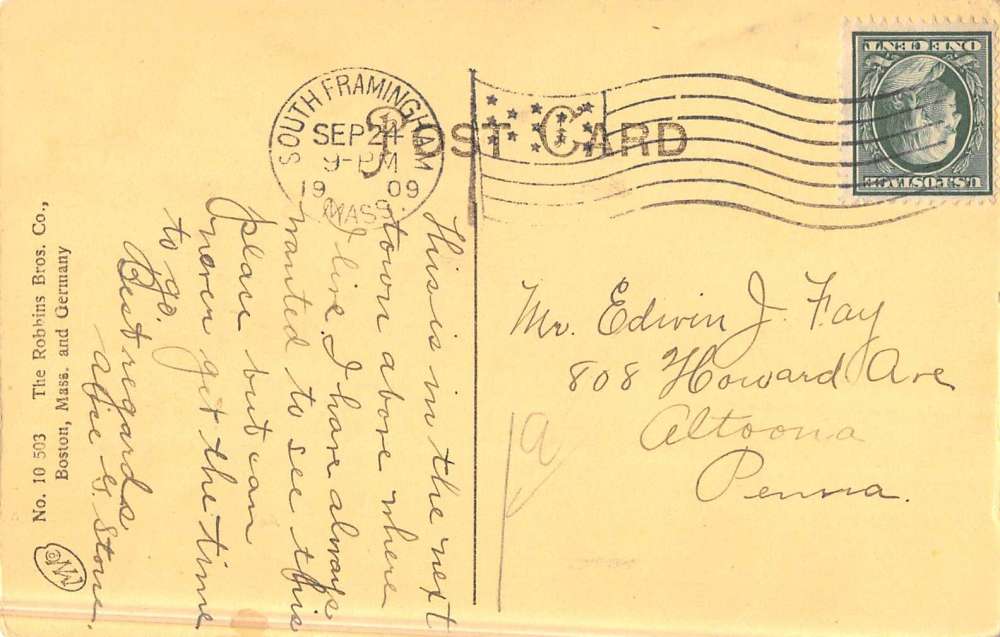 POST CARD
SOUTH FRAMINGHAM
SEP 24
9-PM
1909
MASS.
ONE CENT
U.S. POSTAGE
This is in the next
town above where
I live. I have always
wanted to see this
place but can
never get the time
to go.
Best regards
G. Stone.
Mr. Edwin J. Fay
808 Howard Ave
Altoona
Penna.
No. 10 503 The Robbins Bros. Co.,
Boston, Mass. and Germany